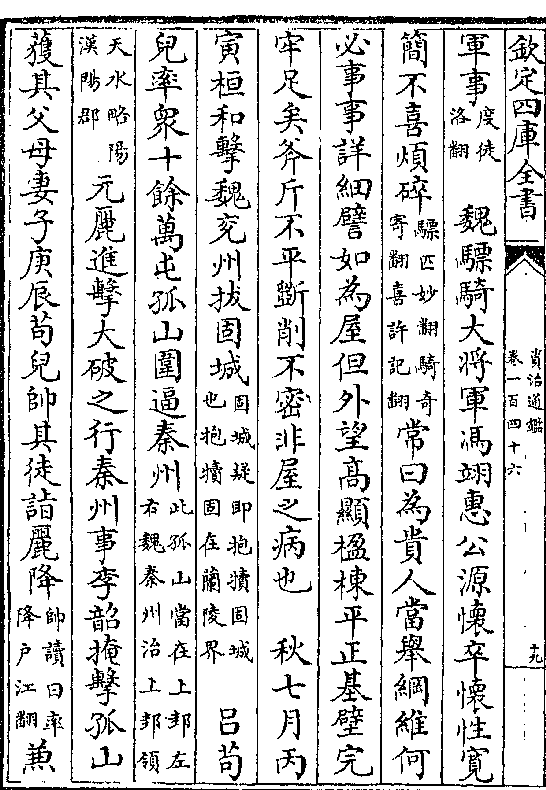 欽定四庫全書
資治通鑑
卷一百四十六
十九
軍事度徒洛翻 魏驃騎大將軍馮翊惠公源懷卒懷性寛
簡不喜煩碎驃匹妙翻騎奇寄翻喜許記翻常曰為貴人當舉綱維何
必事事詳細譬如為屋但外望高顯楹棟平正基壁完
牢足矣斧斤不平斷削不密非屋之病也 秋七月丙
寅桓和擊魏兖州拔固城固城疑即抱犢固城也抱犢固在蘭陵界 呂苟
兒率衆十餘萬屯孤山圍逼秦州此孤山當在上邽左右魏秦州治上邽領
天水略陽漢陽郡元麗進擊大破之行秦州事李韶掩擊孤山
獲其父母妻子庚辰苟兒帥其徒詣麗降帥讀曰率降户江翻兼